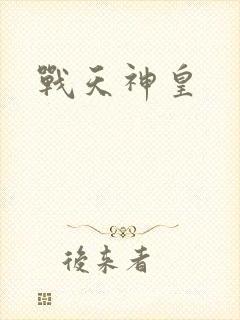 戰天神皇
後來者